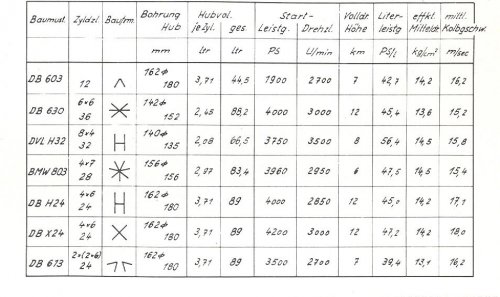 Baumust. Zyldzl. Bau/frm. Bohrung Hub Hubvol. je Zyl. ges. Start- Leistg. Drehzl. Volldr. Höhe Liter- leistg effkt. Mitteldr. mittl. Kolbgschw.
mm ltr ltr PS U/min km PS/l kg/cm² m/sec
DB 603 12 162⌀ 180 3,71 44,5 1900 2700 7 42,7 14,2 16,2
DB 630 6×6 36 142⌀ 152 2,45 88,2 4000 3000 12 45,4 13,6 15,2
DVL H32 8×4 32 140⌀ 135 2,08 66,5 3750 3500 8 56,4 14,5 15,8
BMW 803 4×7 28 156⌀ 156 2,97 83,4 3960 2950 6 47,5 14,5 15,4
DB H24 4×6 24 162⌀ 180 3,71 89 4000 2850 12 45,0 14,2 17,1
DB X24 4×6 24 162⌀ 180 3,71 89 4200 3000 12 47,2 14,2 18,0
DB 613 2×(2×6) 24 162⌀ 180 3,71 89 3500 2700 7 39,4 13,1 16,2